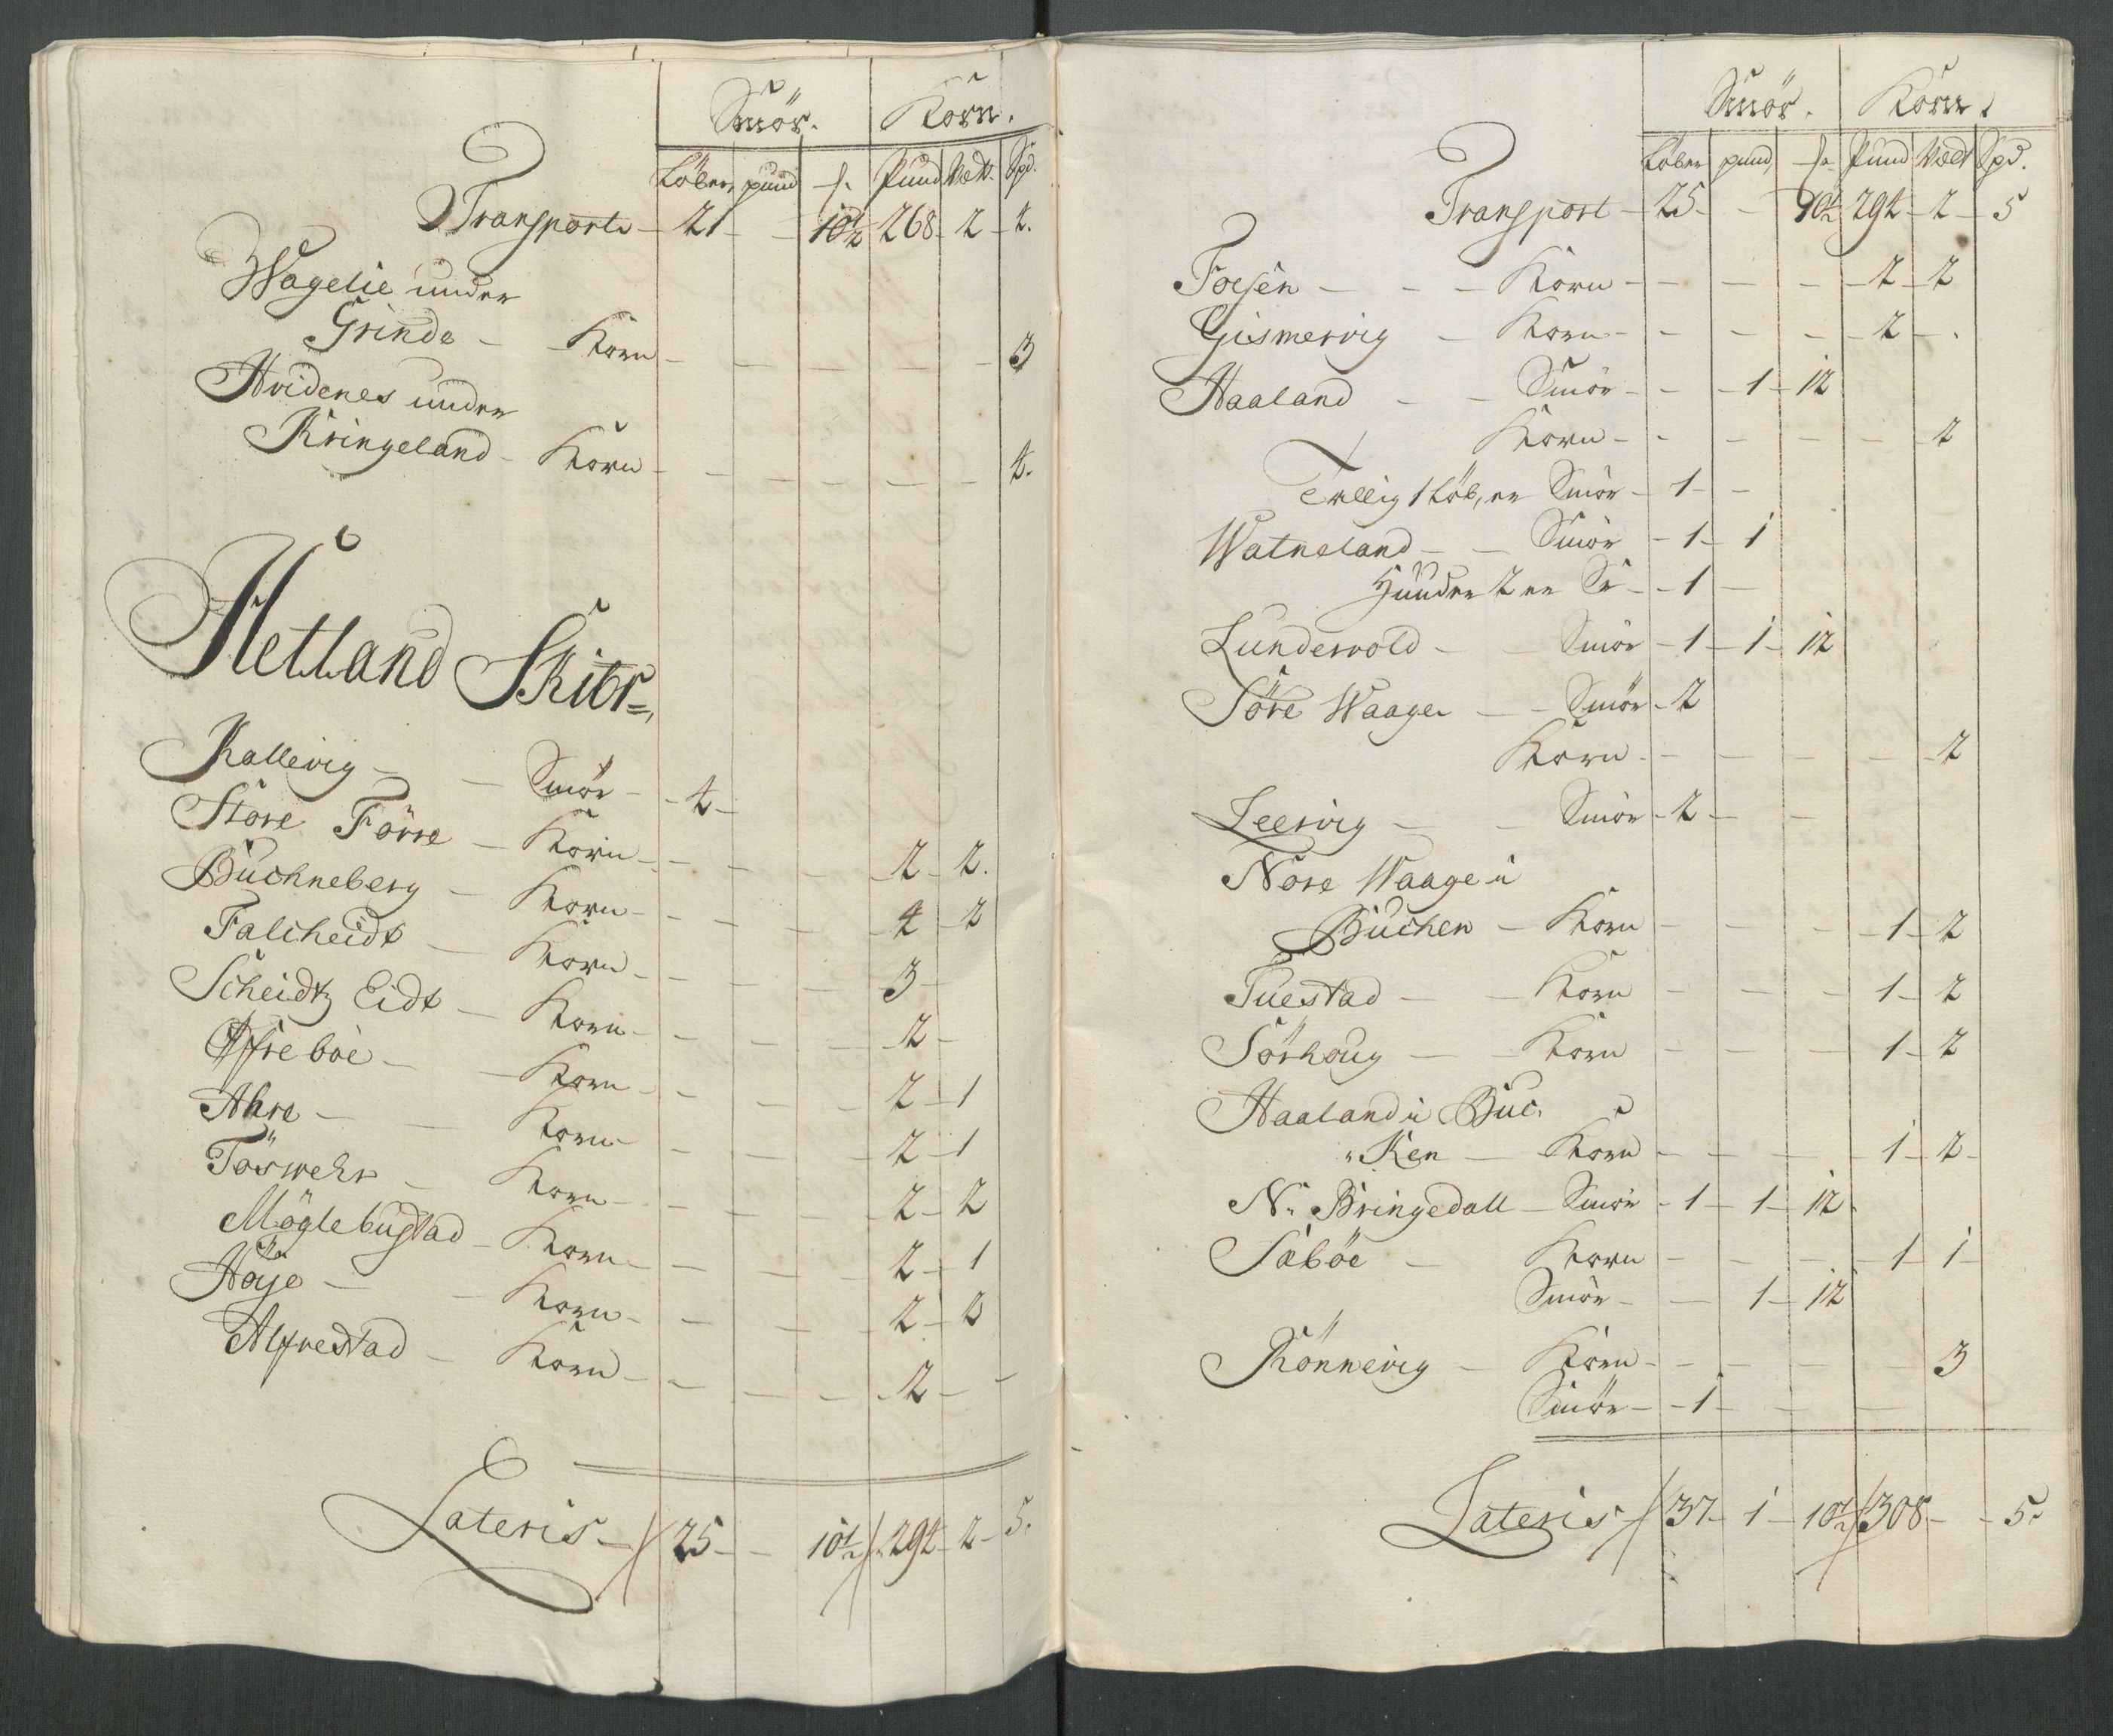 Smör. Korn.
Löber pund s. Pund Vett. Spd.
Transport 21 - 10½ 268 2 4.
Wagelie under
Grinde - Korn - - - - - 3
Hvidenes under
Kringeland - Korn - - - - - 4.
Hetland Skibr,
Kallevig - - Smör - 4 -
Store Förre - Korn - - - 2 - 2.
Buchneberg - Korn - - - 4 - 2
Falcheidt - Korn - - - 3 -
Scheidtz Eidt - Korn - - - 2 -
Öfre böe - - Korn - - - 2 - 1
Ahre - - Korn - - - 2 - 1
Töswehr - Korn - - - 2 - 2
Möglebustad - Korn - - - 2 - 1
Höje - - Korn - - - 2 - 2
Alfrestad - Korn - - - 2 - -
Lateris - 25 - - 10½ 294 - 2 - 5.
Smör. Korn.
Löber pund s. Pund Vedt Spd.
Transport - 25 - - 10½ 294 - 2 - 5
Foesen - - - Korn - - - 2 - 2
Gismervig - Korn - - - 2 -
Haaland - - Smör - - 1 - 12
Korn - - - - - 2
Tellig 1 Löb, er Smör - 1 -
Watneland - - Smör - 1 - 1
Hunder 2 er Sr - 1 -
Lundevold - - Smör - 1 - 1 - 12
Söre Waage - - Smör - 2
Korn - - - - 2
Leervig - - Smör - 2 - -
Nore Waage i
Buchen - Korn - - - 1 - 2
Tuestad - - Korn - - - 1 - 2
Sörhoug - - Korn - - - 1 - 2
Haaland i Buc,
"Ken - Korn - - - 1 - 2 -
N. Bringedall - Smör - 1 - 1 - 12.
Säböe - Korn - - - 1 - 1 -
Smör - - 1 - 12
Rönnevig - Korn - - - 3
Smör - - 1 - - -
Lateris - 37 - 1 - 10½ 308 - - 5.